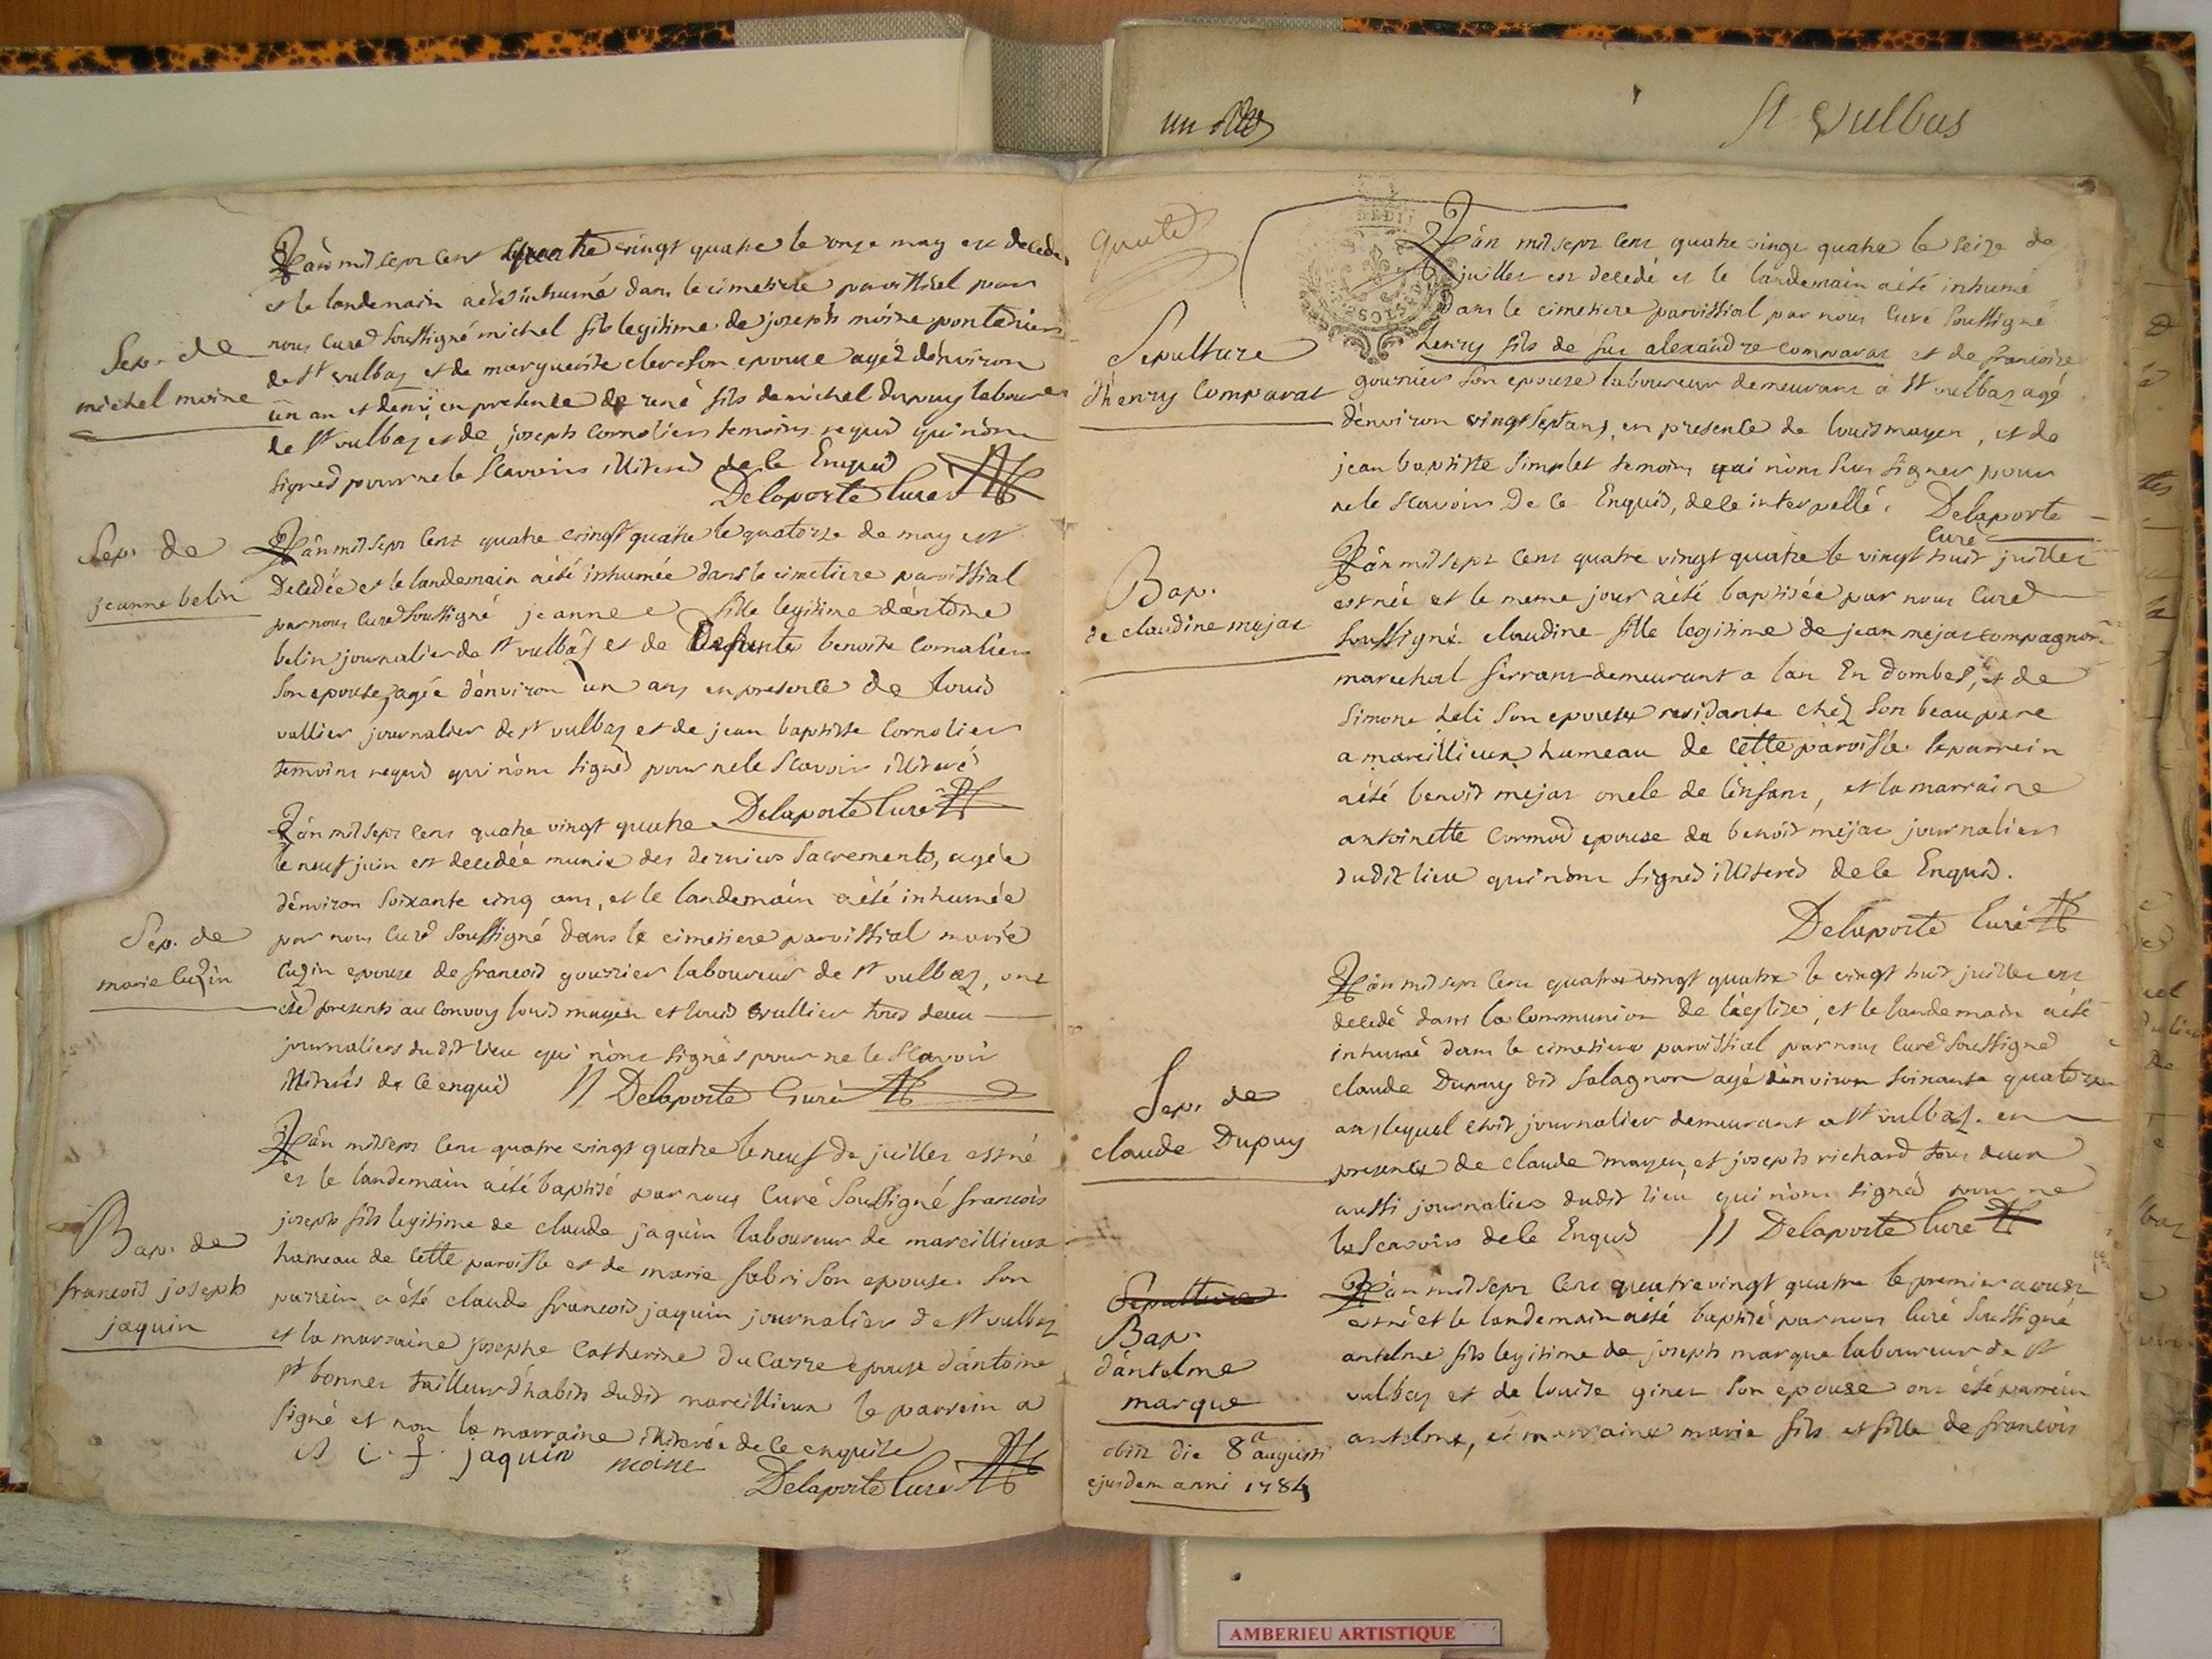 St Vulbas
Sep. de
michel moine
L'an mil sept cent quatre vingt quatre le onze may est decedé
et le landemain a été inhumé dans le cimetiere paroissial par
nous curé soussigné michel fils legitime de joseph moine pontenier
de st vulbaz et de marguerite clerc son epouse agéz d'environ
un an et demi en presence de rené fils de michel dupuy laboureur
de st vulbaz et de joseph cornolier temoins requis qui n'ont
signed pour ne le scavoir illitered de ce Enquis
Delaporte curé
Sep. de
jeanne belin
L'an mil sept cent quatre vingt quatre le quatorze de may est
Decedée et le landemain a été inhumée dans le cimetiere paroissial
par nous curé soussigné jeanne fille legitime d'antoine
belin journalier de st vulbas et de Defunte benoite Cornolier
son epouse, agée d'environ un ans en presence de louis
vallier journalier de st vulbaz et de jean baptiste Cornolier
temoins requis qui n'ont signed pour ne le scavoir illiteré
Delaporte Curé
Sep. de
marie cuzin
L'an mil sept cent quatre vingt quatre
le neuf juin est decedée munie des derniers sacrements, agée
d'environ soixante cinq ans, et le landemain a été inhumée
par nous curé soussigné dans le cimetiere paroissial marie
Cuzin epouse de francois gourrier laboureur de st vulbaz, ont
été presents au convoy louis mayen et louis vullier tous deux
journaliers dudit lieu qui n'ont signés pour ne le scavoir
illiterés de ce enquis // Delaporte Curé
Bap. de
francois joseph
jaquin
L'an mil sept cent quatre vingt quatre le neuf de juillet est né
et le landemain a été baptisé par nous Curé soussigné francois
joseph fils legitime de claude jaquin laboureur de marcillieux
hameau de cette paroisse et de marie fabri son epouse. son
parrein a été claude francois jaquin journalier de st vulbaz
et la marraine josephe Catherine ducarre epouse d'antoine
st bonnet tailleur d'habits dudit marcillieux le parrein a
signé et non la marraine illiterée de ce enquise
c. f. jaquin moine
Delaporte curé
Sepulture
d'henry Comparat
L'an mil sept cent quatre vingt quatre le seize de
juillet est decedé et le landemain a été inhumé
dans le cimetiere paroissial par nous Curé soussigné
henry fils de feu alexandre comparat et de francoise
gourrier son epouse laboureur demeurant a st vulbaz agé
d'environ vingt sept ans, en presence de louis mayen, et de
jean baptiste simplet temoins qui n'ont sus signer pour
ne le scavoir de ce Enquis, de ce interpellé. Delaporte
Curé
Bap.
de claudine mejat
L'an mil sept cent quatre vingt quatre le vingt huit juillet
est née et le meme jour a été baptisée par nous Curé
soussigné claudine fille legitime de jean mejat compagnon
marechal ferrant demeurant a lan En dombes, et de
simone heli son epouse residante chez son beau pere
a marcillieux hameau de cette paroisse. le parrein
a été benoit mejat oncle de l'enfant, et la marraine
antoinette Cormod epouse de benoit mejat journalier
dudit lieu qui n'ont signed illitered de ce Enquis.
Delaporte Curé
Sep. de
claude Dupuy
L'an mil sept cent quatre vingt quatre le vingt huit juillet est
decedé dans la Communion de l'eglise, et le landemain a été
inhumé dans le cimetiere paroissial par nous Curé soussigné
claude Dupuy dit salagnon agé d'environ soixante quatorze
ans lequel etoit journalier demeurant a st vulbaz. en
presence de claude mayen, et joseph richard tous deux
aussi journalier dudit lieu qui n'ont signed pour ne
le scavoir de ce Enquis // Delaporte Curé
Sepulture
Bap.
d'antelme
marque
obiit die 8a augusti
ejusdem anni 1784
L'an mil sept cent quatre vingt quatre le premier aoust
est né et le landemain a été baptisé par nous curé soussigné
antelme fils legitime de joseph marque laboureur de st
vulbaz et de louise ginet son epouse ont été parrein
antelme, et marraine marie fils et fille de francois
AMBERIEU ARTISTIQUE